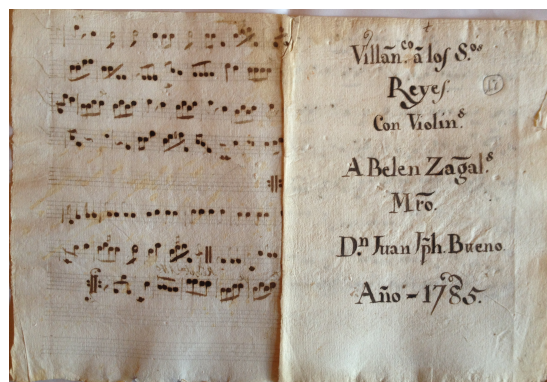 Villan.co â los S.os
Reyes.
17
Con Violin.s
A Belen Zagal.s
Mrõ.
D.n Juan Jph. Bueno.
Año - 1785.